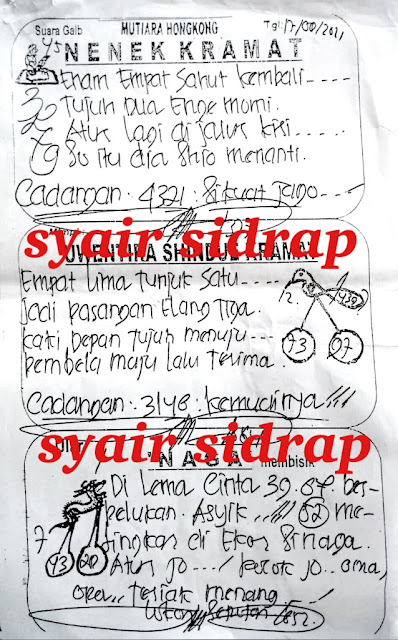 Suara Gaib MUTIARA HONGKONG Tgl: 17/00/2021
NENEK KRAMAT
45
Enam Empat Sahut kembali----
Tujuh Dua Enge momi.
Atur lagi di jalur kiri-----
So itu dia Shio menanti.
Cadangan. 4321. Sikuat Jago---
syair sidrap
SHINDUE KRAMAT
Empat Lima Tunjuk Satu----
Jadi pasangan Elang Tiga.
kaki Depan Tujuh menuju---
pembela maju lalu Terima.
12.
73 97
Cadangan. 3148. kemudinya !!!
syair sidrap
NAGA membisik
Di Lema Cinta 39.07 ber-
pelukan. Asyik..!!! 52 me-
ningkat di Ekor Si naga.
7
93 20
Atur jo---/ besok jo.. oma,
opa.. Terjak menang